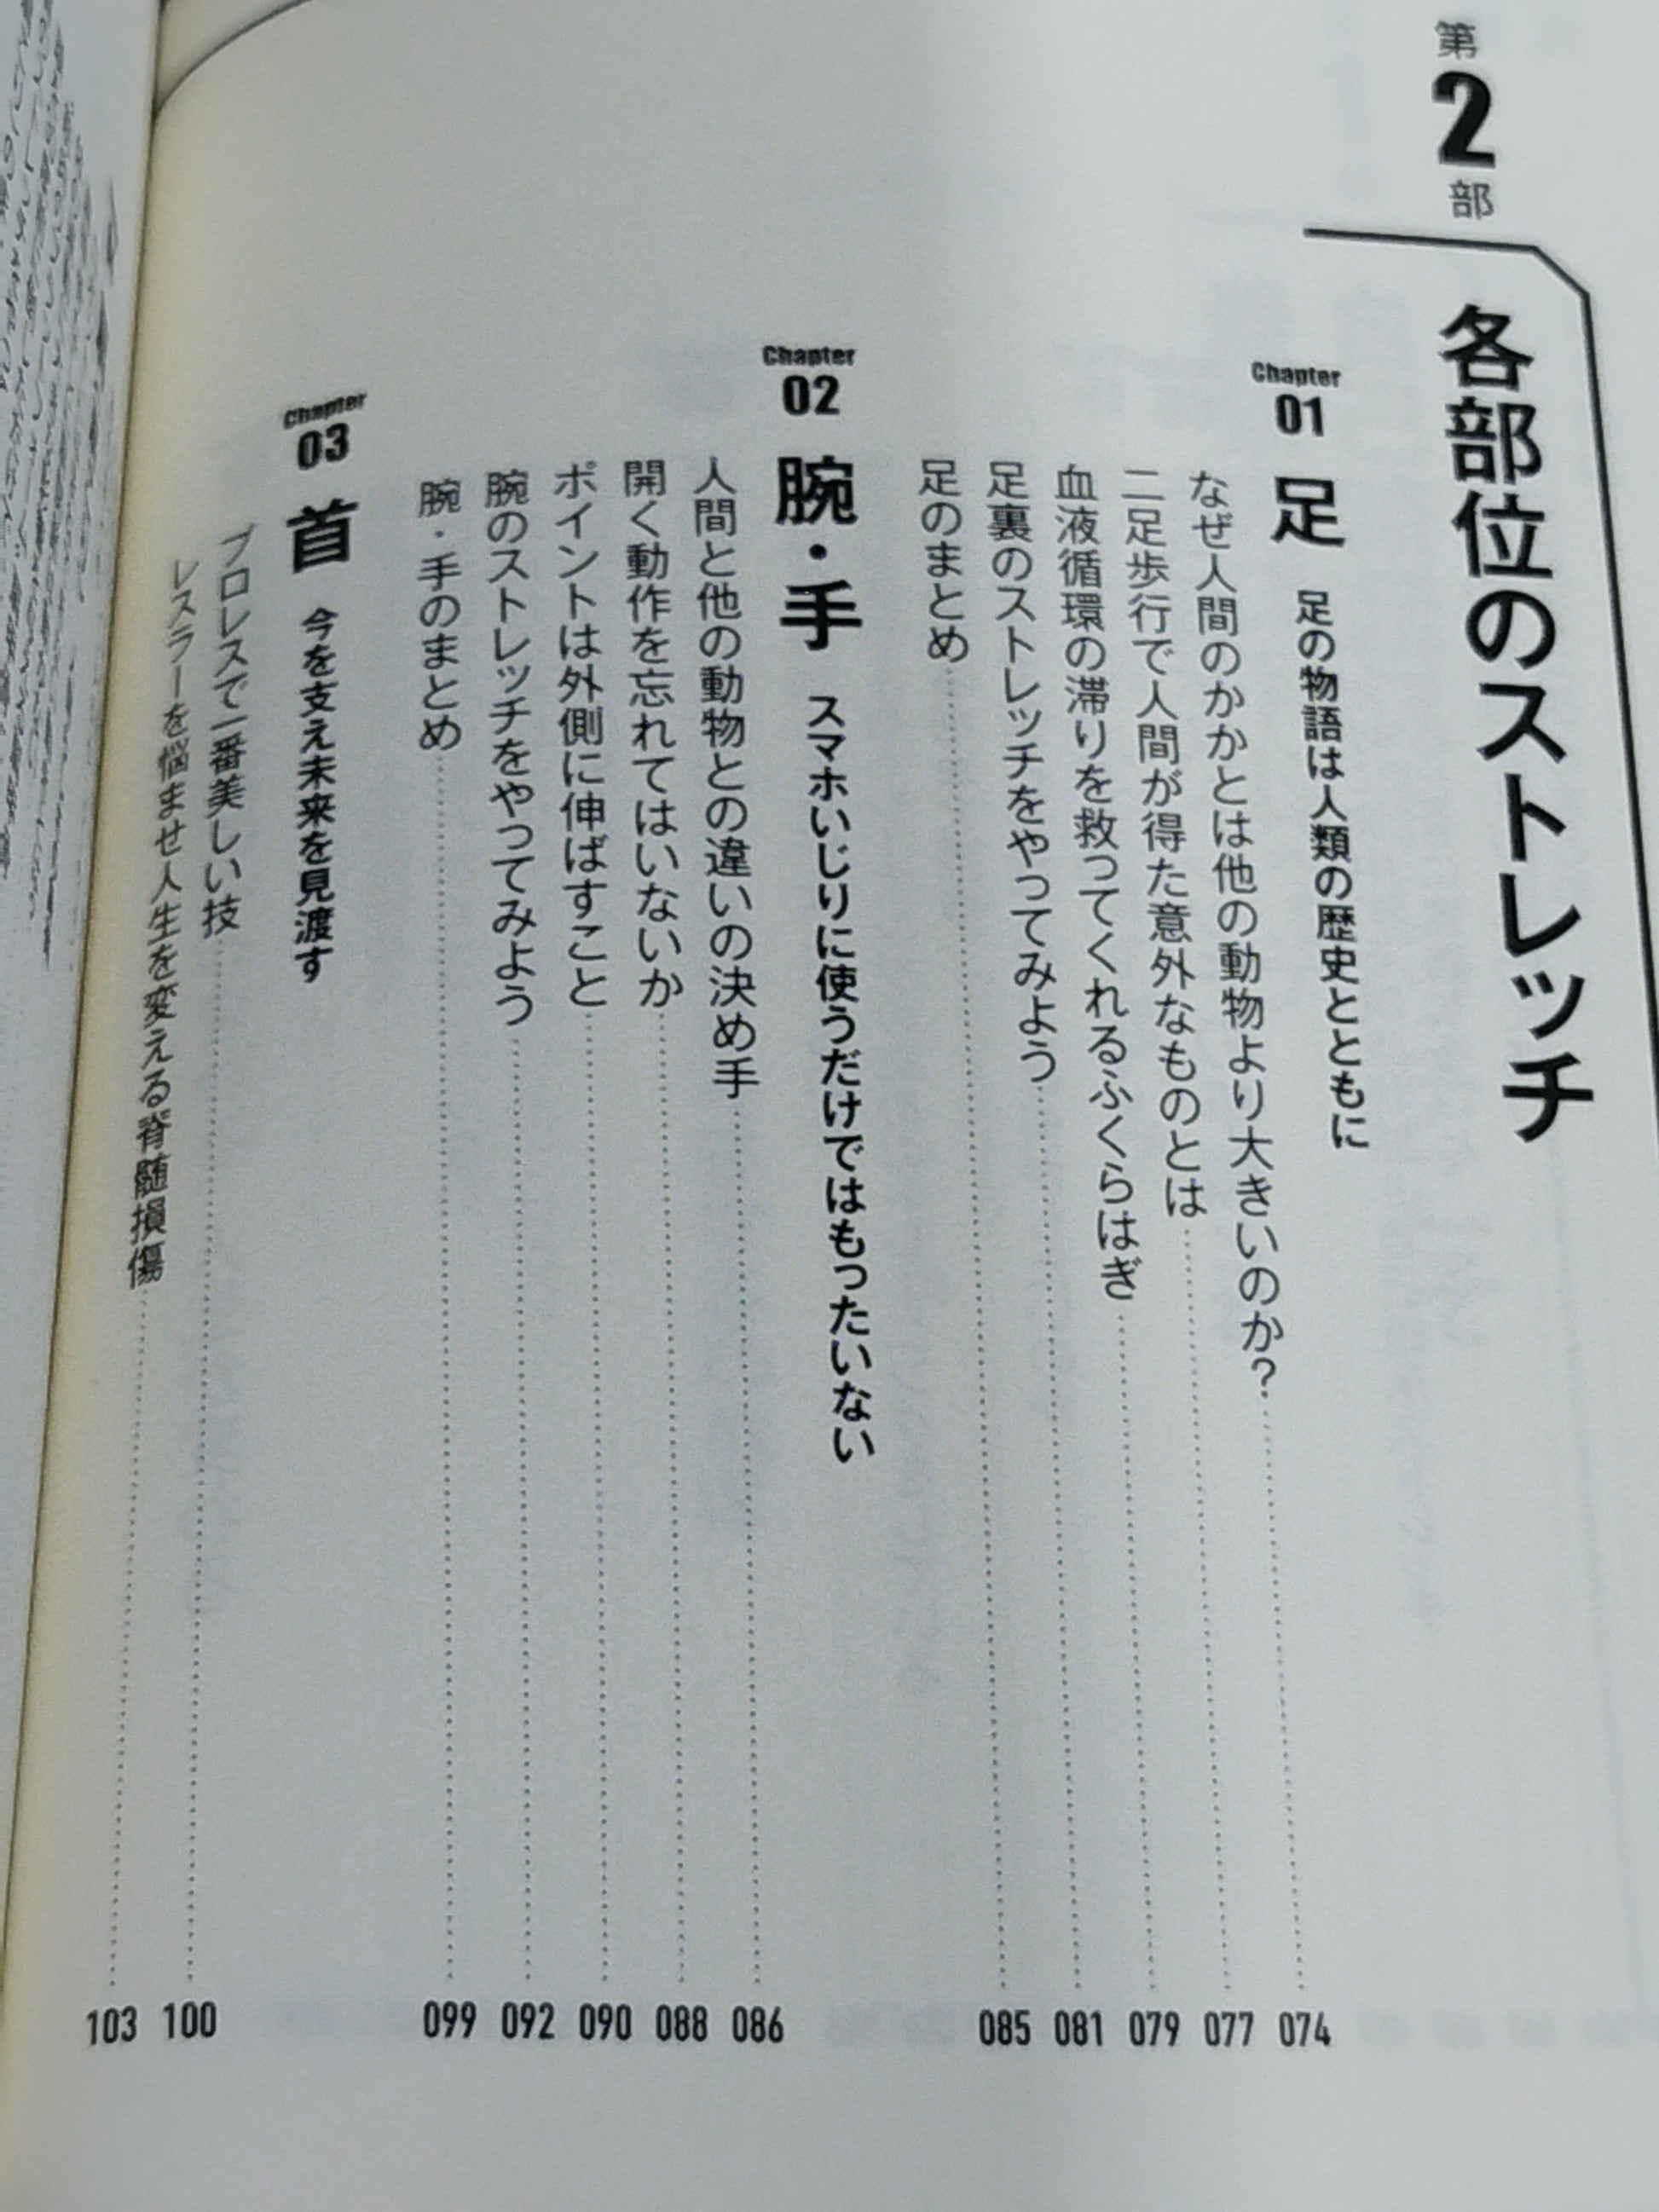 第2部
各部位のストレッチ
Chapter 01 足 足の物語は人類の歴史とともに
なぜ人間のかかとは他の動物より大きいのか? 074
二足歩行で人間が得た意外なものとは 077
血液循環の滞りを救ってくれるふくらはぎ 079
足裏のストレッチをやってみよう 081
足のまとめ 085
Chapter 02 腕・手 スマホいじりに使うだけではもったいない
人間と他の動物との違いの決め手 086
開く動作を忘れてはいないか 088
ポイントは外側に伸ばすこと 090
腕のストレッチをやってみよう 092
腕・手のまとめ 099
Chapter 03 首 今を支え未来を見渡す
プロレスで一番美しい技 100
レスラーを悩ませ人生を変える脊髄損傷 103